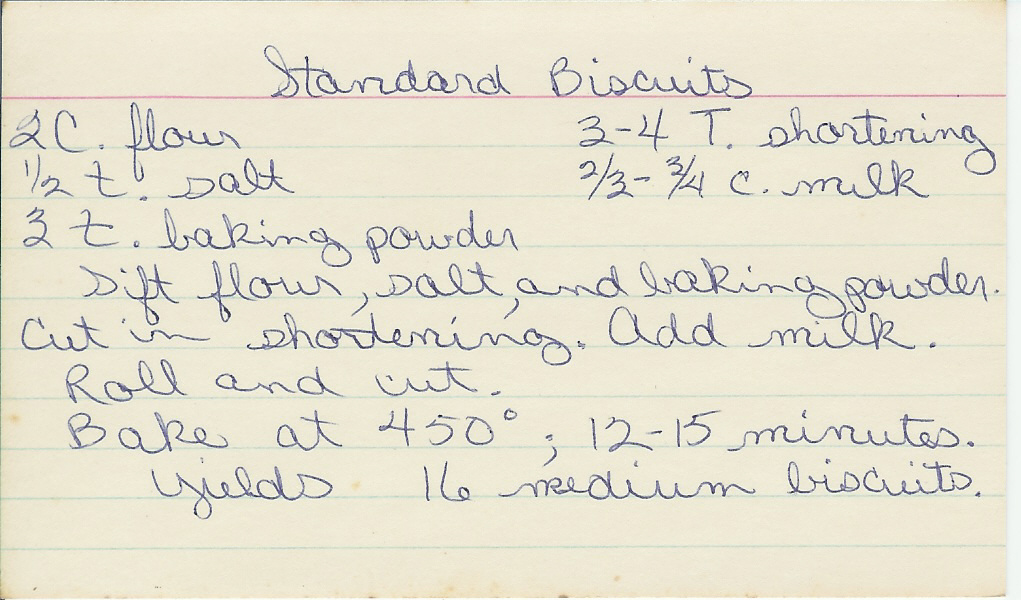 Standard Biscuits
2 C. flour 3-4 T. shortening
1/2 t. salt 2/3-3/4 c. milk
3 t. baking powder
Sift flour, salt, and baking powder.
Cut in shortening. Add milk.
Roll and cut.
Bake at 450°; 12-15 minutes.
Yields 16 medium biscuits.